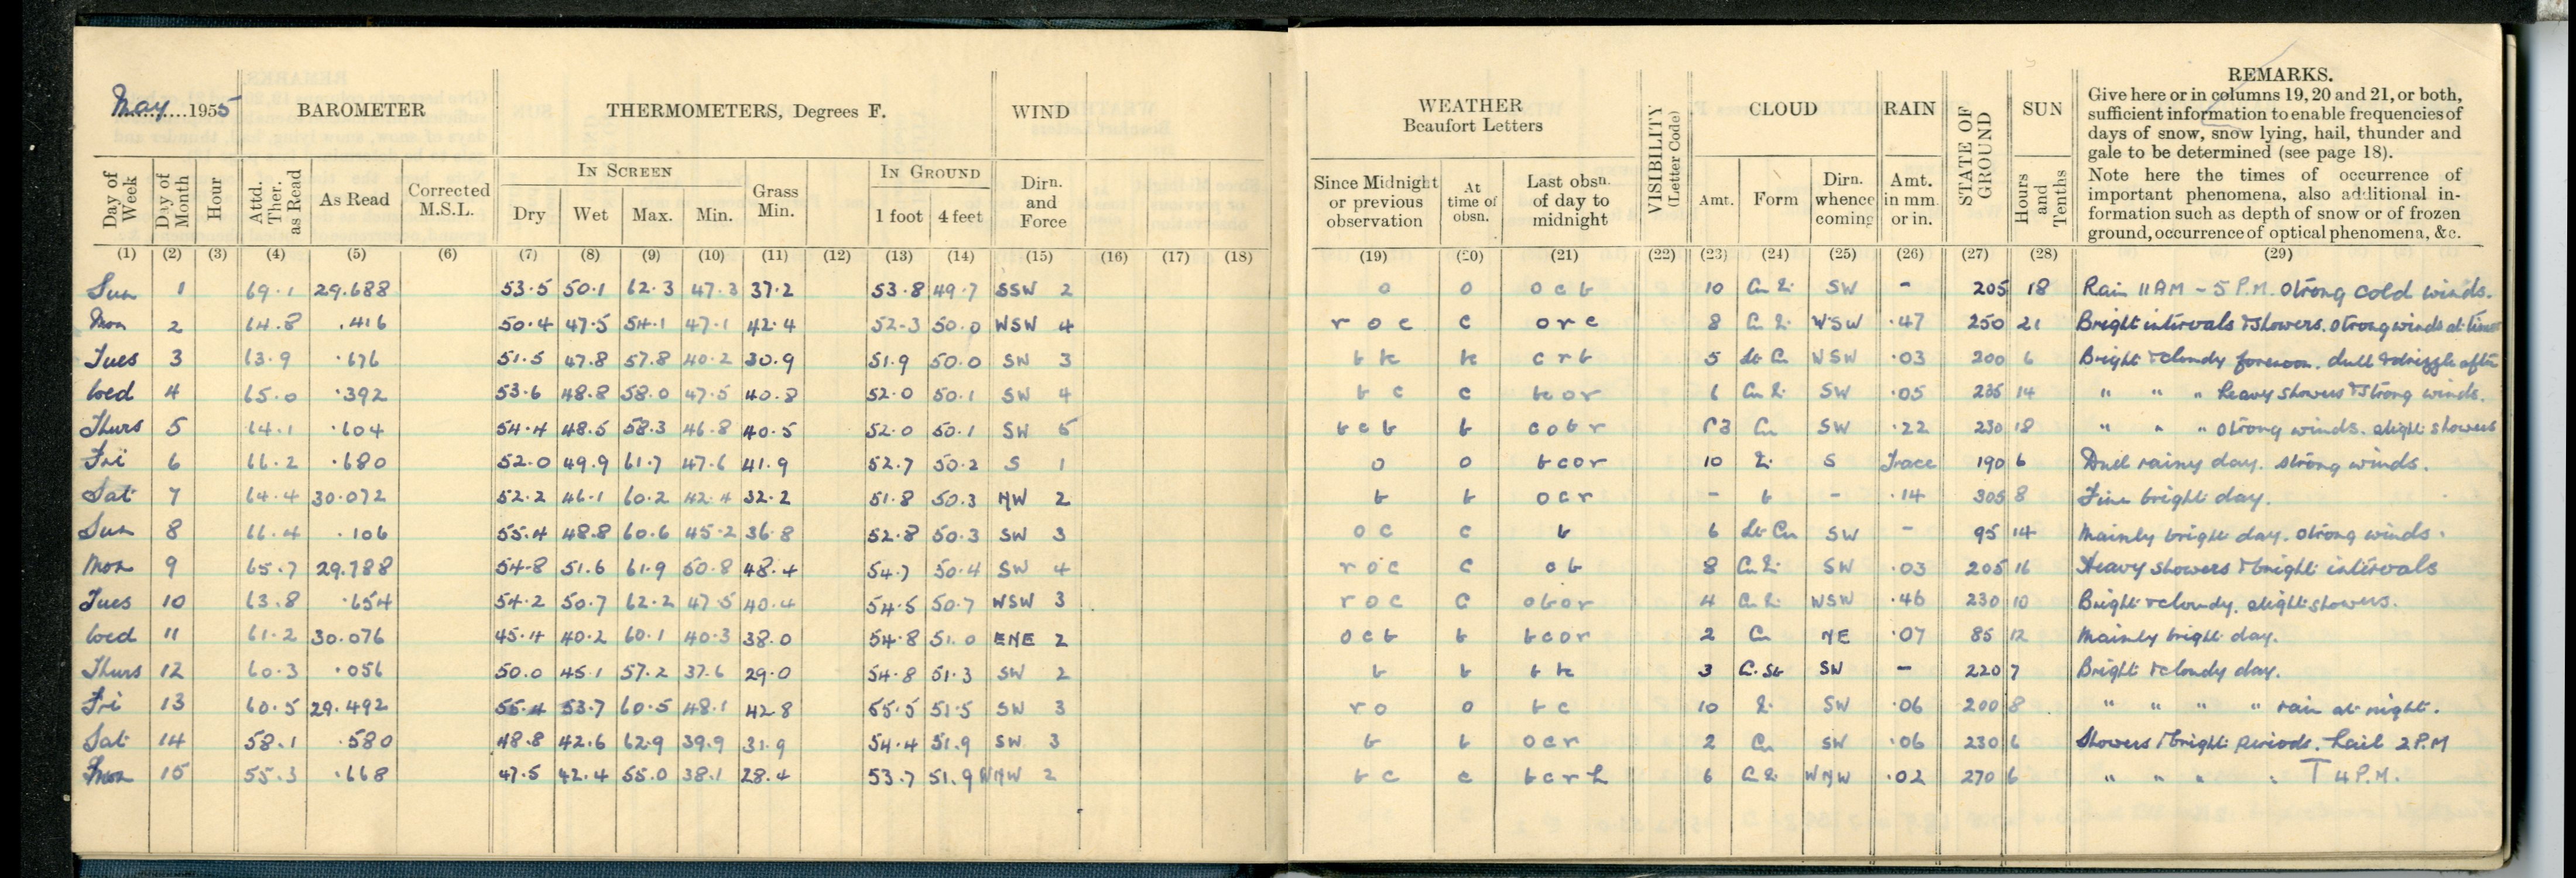 May 1955 BAROMETER THERMOMETERS, Degrees F. WIND WEATHER Beaufort Letters VISIBILITY (Letter Code) CLOUD RAIN STATE OF GROUND SUN REMARKS.
Give here or in columns 19, 20 and 21, or both,
sufficient information to enable frequencies of
days of snow, snow lying, hail, thunder and
gale to be determined (see page 18).
Note here the times of occurrence of
important phenomena, also additional in-
formation such as depth of snow or of frozen
ground, occurrence of optical phenomena, &c.
Day of Week Day of Month Hour Attd. Ther. as Read As Read Corrected M.S.L. IN SCREEN Dry Wet Max. Min. Grass Min. IN GROUND 1 foot 4 feet Dirn. and Force Since Midnight or previous observation At time of obsn. Last obsn. of day to midnight Amt. Form Dirn. whence coming Amt. in mm. or in. Hours and Tenths
(1) (2) (3) (4) (5) (6) (7) (8) (9) (10) (11) (12) (13) (14) (15) (16) (17) (18) (19) (20) (21) (22) (23) (24) (25) (26) (27) (28) (29)
Sun 1 69.1 29.688 53.5 50.1 62.3 47.3 37.2 53.8 49.7 SSW 2 o o o c b 10 SW - 205 18 Rain 11 AM - 5 P.M. Strong cold winds.
Mon 2 64.8 .416 50.4 47.5 54.1 47.1 42.4 52.3 50.0 WSW 4 r o c c o r c 8 WSW .47 250 21 Bright intervals & Showers. Strong winds at times
Tues 3 63.9 .676 51.5 47.8 57.8 40.2 30.9 51.9 50.0 SW 3 c r b 5 WSW .03 200 6 Bright & cloudy forenoon. dull & drizzle after
Wed 4 65.0 .392 53.6 48.8 58.0 47.5 40.8 52.0 50.1 SW 4 b c c bc o r 6 SW .05 235 14 " " " heavy showers & Strong winds.
Thurs 5 64.1 .604 54.4 48.5 58.3 46.8 40.5 52.0 50.1 SW 5 b c b b c o b r 3 Cu SW .22 230 18 " " " Strong winds. slight showers
Fri 6 66.2 .680 52.0 49.9 61.7 47.6 41.9 52.7 50.2 S 1 o o b c o r 10 S Trace 190 6 Dull rainy day. Strong winds.
Sat 7 64.4 30.072 52.2 46.1 60.2 42.4 32.2 51.8 50.3 NW 2 b b o c r - b - .14 305 8 Fine bright day.
Sun 8 66.4 .106 55.4 48.8 60.6 45.2 36.8 52.8 50.3 SW 3 o c c b 6 St Cu SW - 95 14 Mainly bright day. Strong winds.
Mon 9 65.7 29.788 54.8 51.6 61.9 50.8 48.4 54.7 50.4 SW 4 r o c c c b 8 SW .03 205 16 Heavy showers & bright intervals
Tues 10 63.8 .654 54.2 50.7 62.2 47.5 40.4 54.5 50.7 WSW 3 r o c c o b o r 4 WSW .46 230 10 Bright & cloudy. slight showers.
Wed 11 61.2 30.076 45.4 40.2 60.1 40.3 38.0 54.8 51.0 ENE 2 o c b b b c o r 2 Cu NE .07 85 12 Mainly bright day.
Thurs 12 60.3 .056 50.0 45.1 57.2 37.6 29.0 54.8 51.3 SW 2 b b b bc 3 C. St SW - 220 7 Bright & cloudy day.
Fri 13 60.5 29.492 55.4 53.7 60.5 48.1 42.8 55.5 51.5 SW 3 r o o b c 10 SW .06 200 8 " " " " rain at night.
Sat 14 58.1 .580 48.8 42.6 62.9 39.9 31.9 54.4 51.9 SW 3 b b o c r 2 Cu SW .06 230 6 Showers & bright periods. hail 2 P.M
15 55.3 .668 47.5 42.4 55.0 38.1 28.4 53.7 51.9 WNW 2 b c c b c r h 6 WNW .02 270 6 " " " " T 4 P.M.